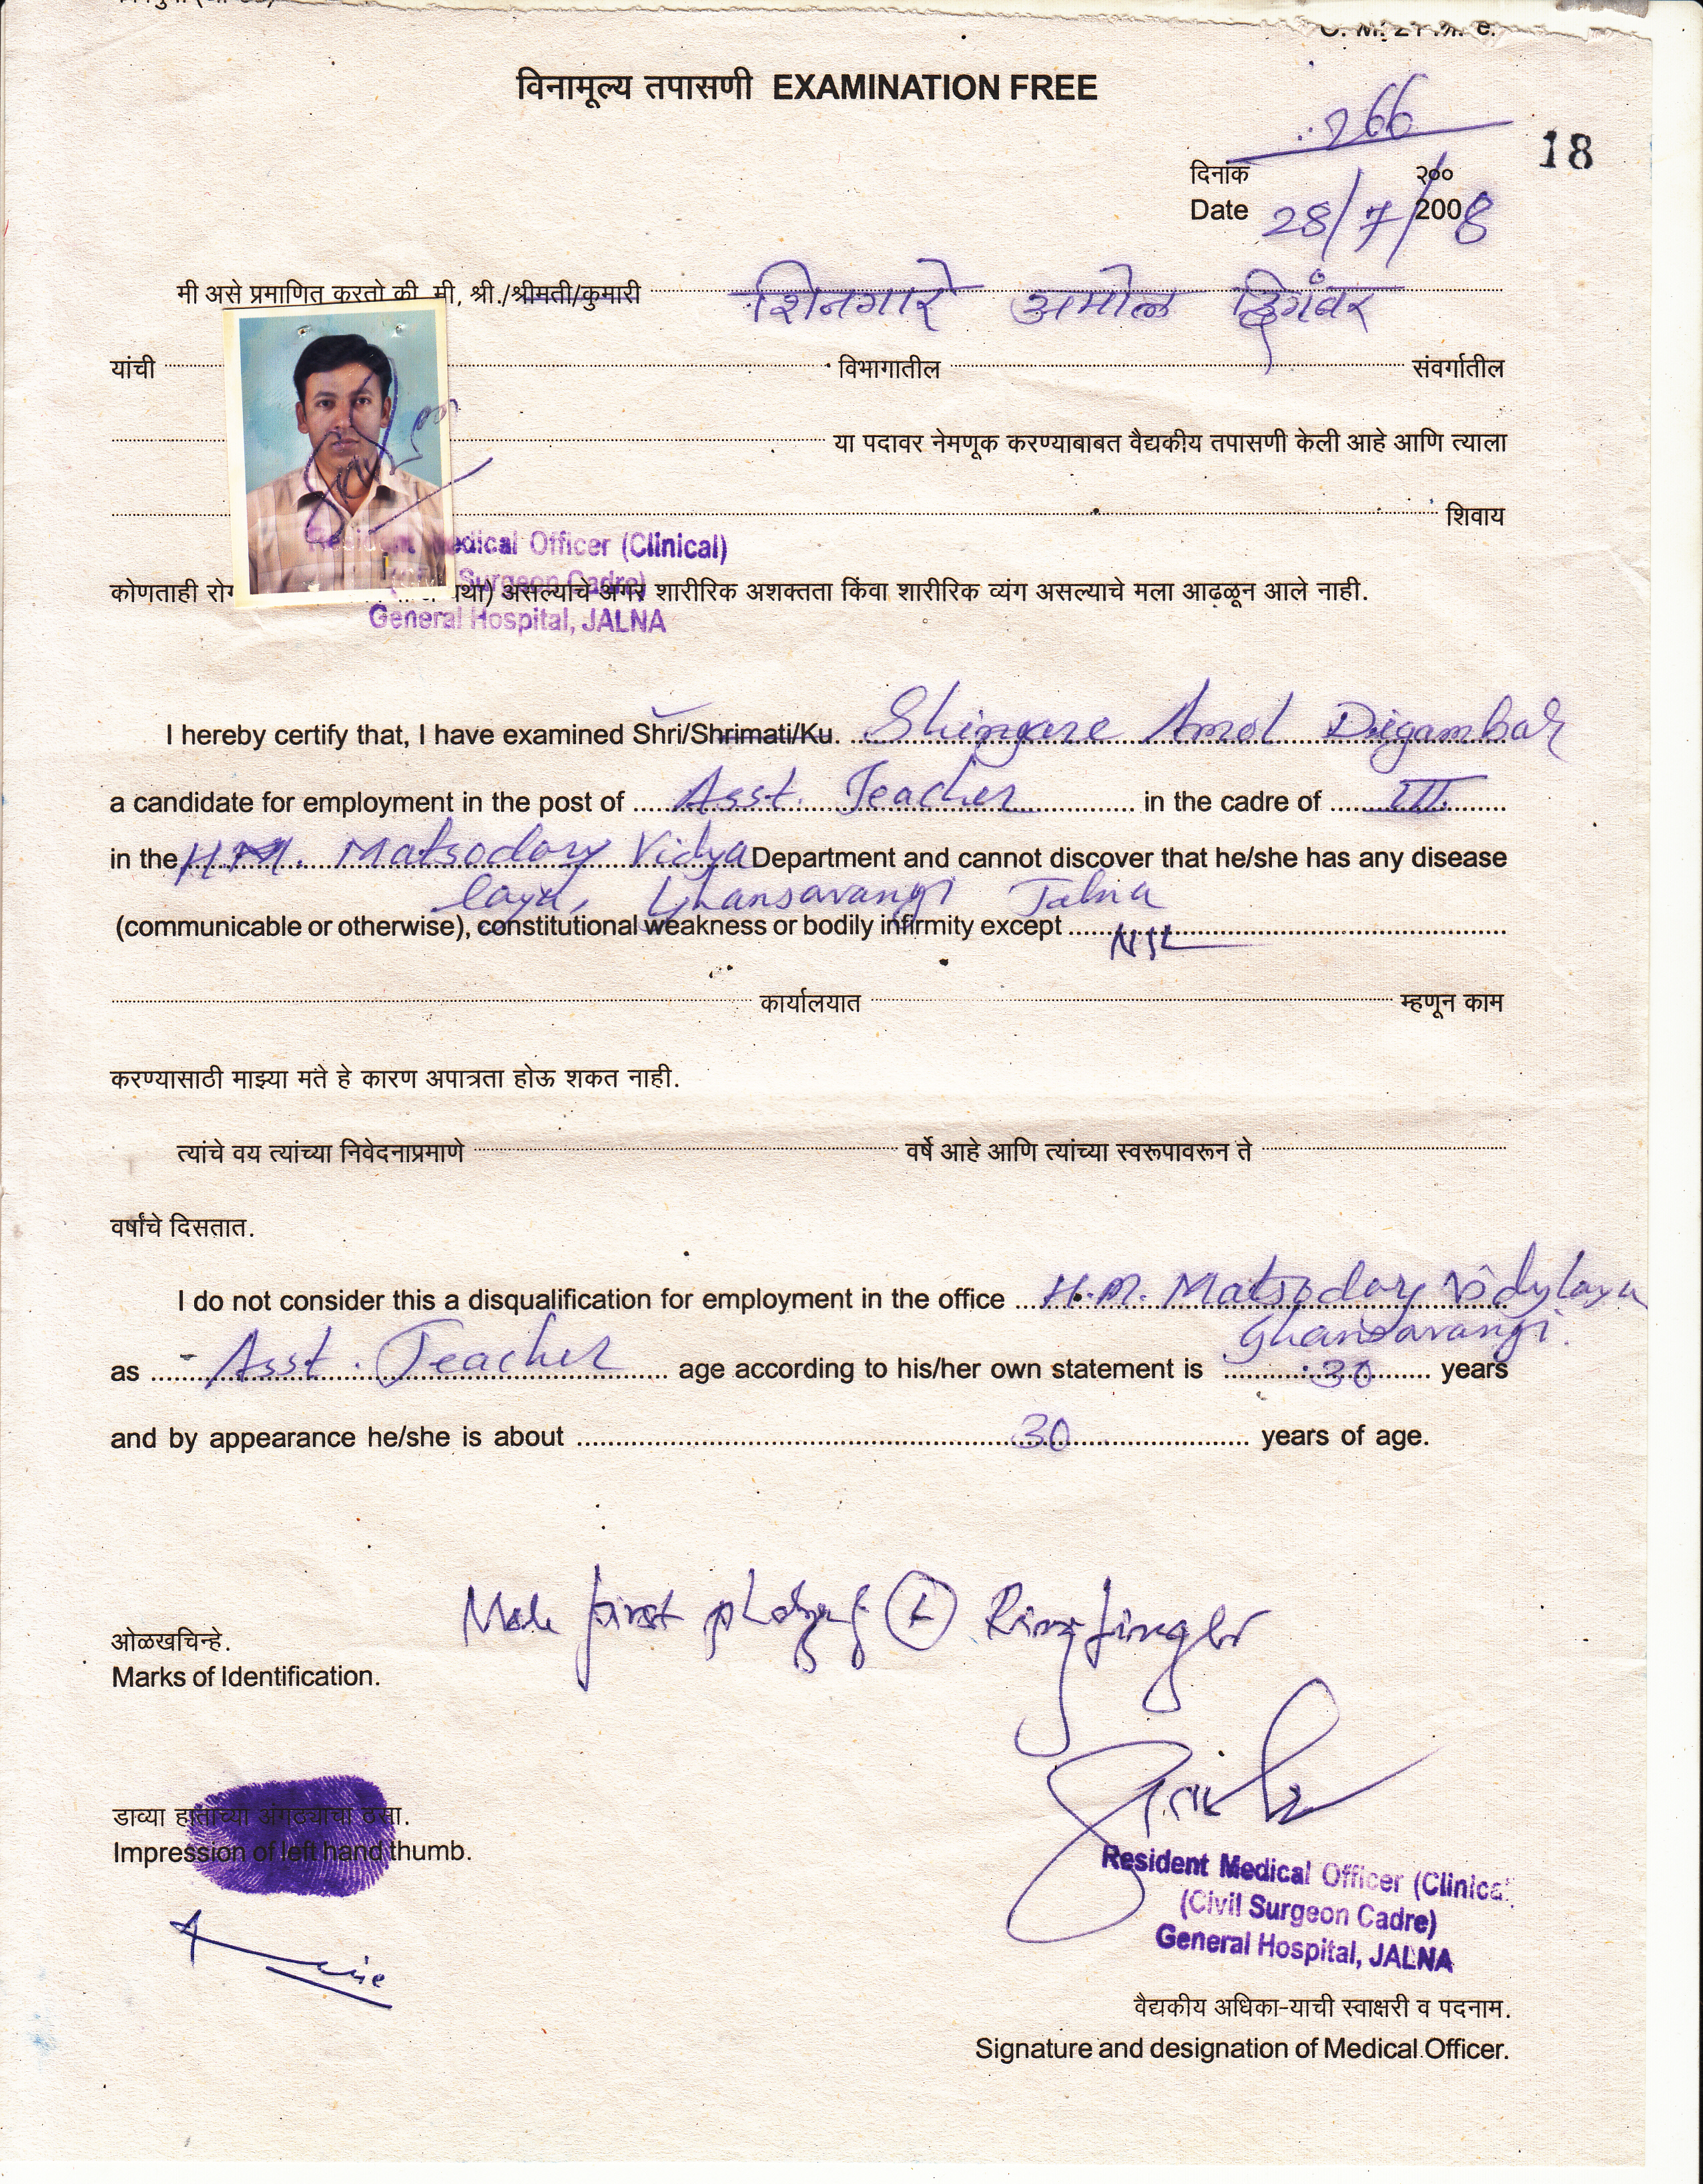 विनामूल्य तपासणी EXAMINATION FREE
266
18
दिनांक २००
Date 28/7/2008
मी असे प्रमाणित करतो की, मी, श्री./श्रीमती/कुमारी शिनगारे अमोल दिगंबर
यांची विभागातील संवर्गातील
या पदावर नेमणूक करण्याबाबत वैद्यकीय तपासणी केली आहे आणि त्याला
शिवाय
Resident Medical Officer (Clinical)
Surgeon Cadre)
कोणताही असल्याचे अगर शारीरिक अशक्तता किंवा शारीरिक व्यंग असल्याचे मला आढळून आले नाही.
General Hospital, JALNA
I hereby certify that, I have examined Shri/Shrimati/Ku. Shingare Amol Digambar
a candidate for employment in the post of Asst. Teacher in the cadre of III
in the H.M. Matsodary Vidya Department and cannot discover that he/she has any disease
laya, Ghansavangi Jalna
(communicable or otherwise), constitutional weakness or bodily infirmity except NIL
कार्यालयात म्हणून काम
करण्यासाठी माझ्या मते हे कारण अपात्रता होऊ शकत नाही.
त्यांचे वय त्यांच्या निवेदनाप्रमाणे वर्षे आहे आणि त्यांच्या स्वरूपावरून ते
वर्षांचे दिसतात.
I do not consider this a disqualification for employment in the office H.M. Matsodary Vidylaya
Ghansavangi.
as Asst. Teacher age according to his/her own statement is 30 years
and by appearance he/she is about 30 years of age.
Mole first L Ring finger
ओळखचिन्हे.
Marks of Identification.
डाव्या हाताच्या अंगठ्याचा ठसा.
Impression of left hand thumb.
Resident Medical Officer (Clinical
(Civil Surgeon Cadre)
General Hospital, JALNA
वैद्यकीय अधिका-याची स्वाक्षरी व पदनाम.
Signature and designation of Medical Officer.